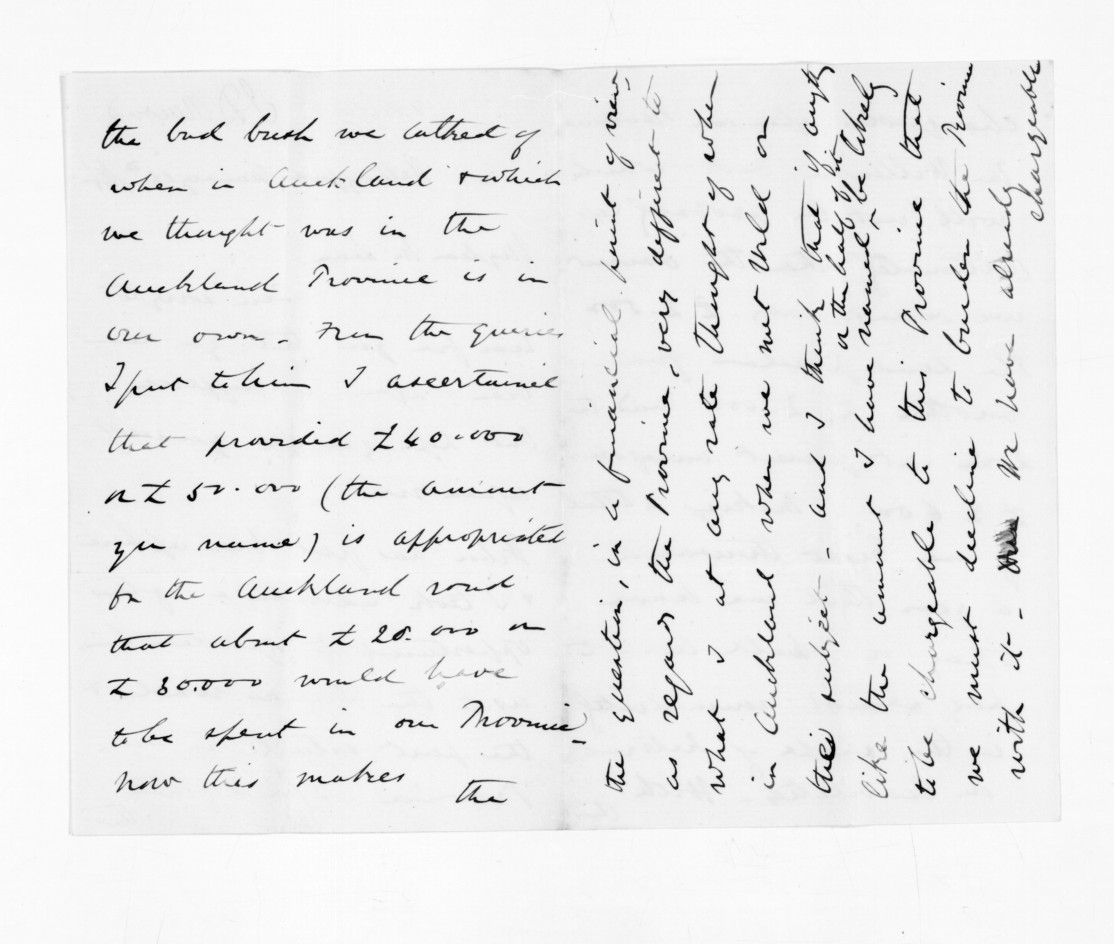 the bad bush we talked of
when in Auckland & which
we thought was in the
Auckland Province is in
our own - From the queries
I put to him I ascertained
that provided £40.000
or £50.000 (the amount
you name) is appropriated
for the Auckland road
that about £20.000 or
£30.000 would have
to be spent in our Province -
now this makes
the
the question, in a financial point of view -
as regards the Province, very different to
what I at any rate thought of when
in Auckland when we met Weld on
this subject - and I think that if anythg
or the half of it
like the amount I have named be likely
to be chargeable to this Province that
we must decline to burden the Province
with it - We have already
chargeable